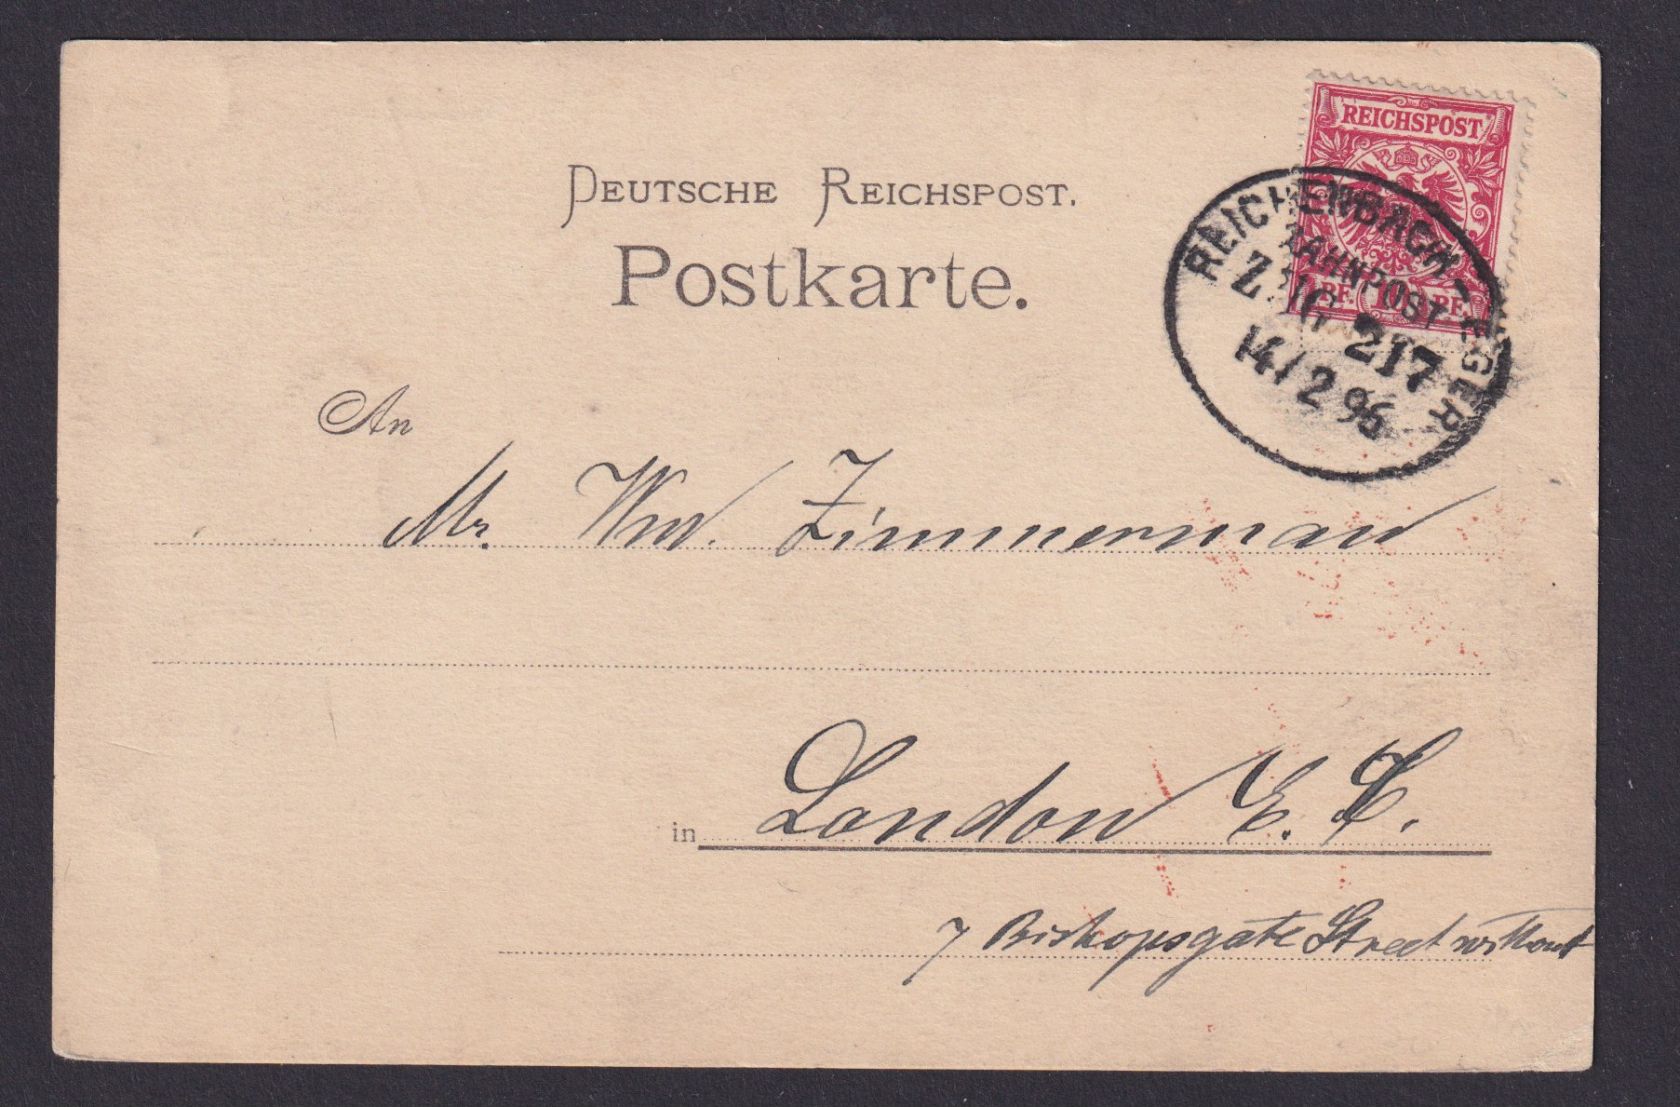 DEUTSCHE REICHSPOST.
Postkarte.
REICHSPOST
PF. 10 PF.
REICHENBACH - EGER
BAHNPOST
ZUG 217
14/2 96
An
Mr. Wm. Zimmerman
in London E. C.
7 Bishopsgate Street without